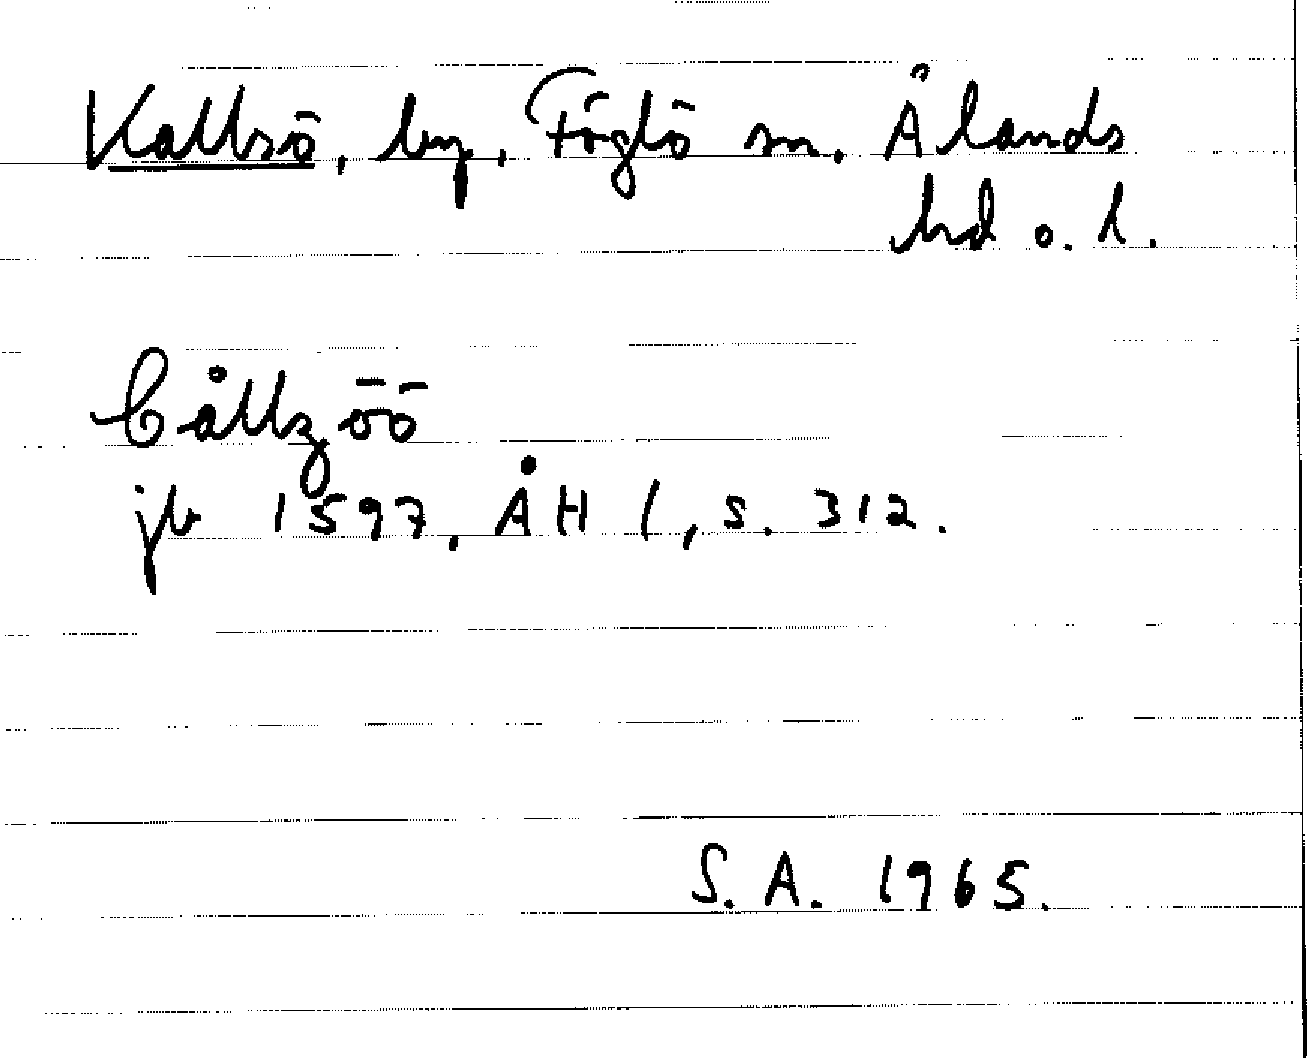 Kallsö, by, Föglö sn. Ålands
hd o. l.
Cållzöö
jb 1597, ÅH 1, s. 312.
S. A. 1965.